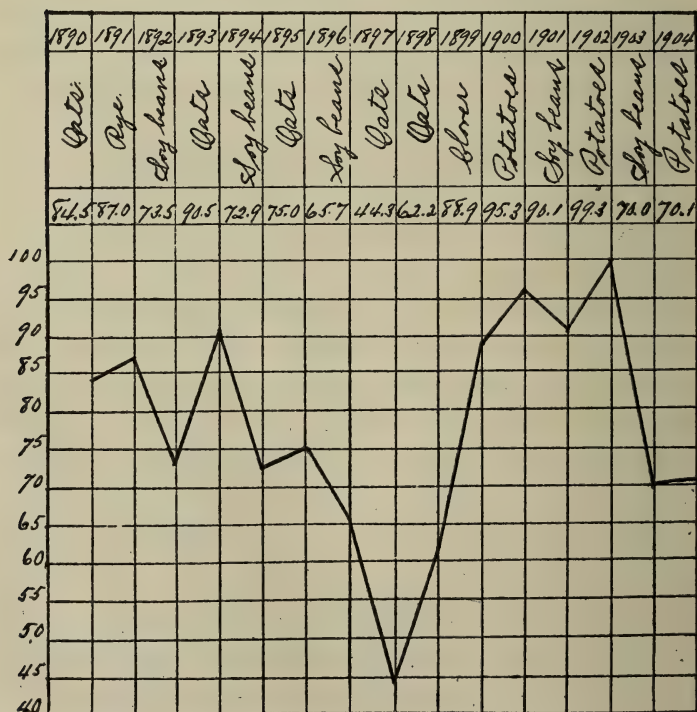 1890 1891 1892 1893 1894 1895 1896 1897 1898 1899 1900 1901 1902 1903 1904
Oats. Rye. Soy beans Oats Soy beans Oats Soy beans Oats Oats Clover Potatoes Soy beans Potatoes Soy beans Potatoes
84.5 87.0 73.5 90.5 72.9 75.0 65.7 44.3 62.2 88.9 95.3 90.1 99.3 70.0 70.1
100
95
90
85
80
75
70
65
60
55
50
45
40